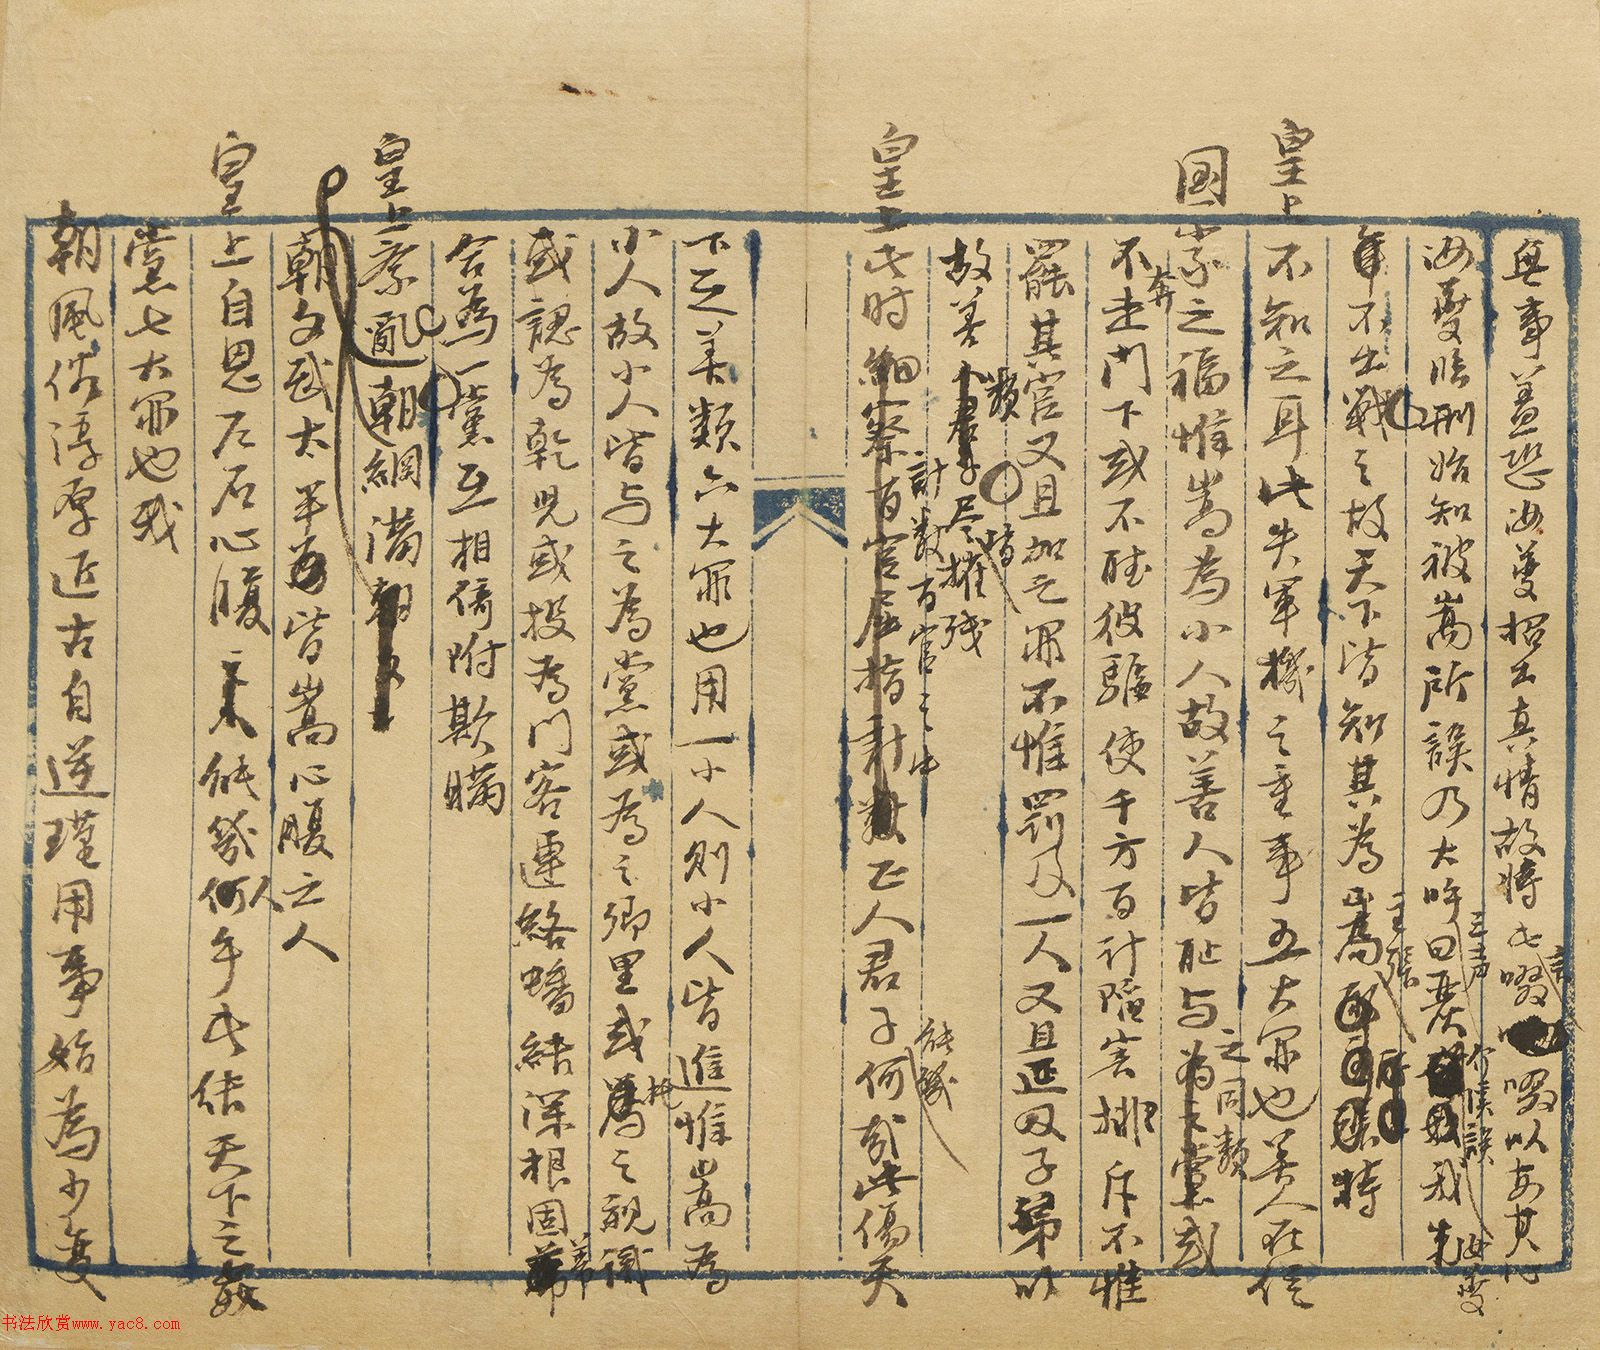 無事蓋恐汝夔招出真情故將此言啜以安其心
汝夔臨刑始知被嵩所誤乃大呼曰嚴嵩誤我夫
年不出戰之故天下皆知其為嵩主張特
皇上不知之耳此失軍機之重事五大罪也善人在位
國家之福惟嵩為小人故善人皆恥與之同類黨或
不奔走門下或不聽彼驅使千方百計陷害排斥不惟
罷其官又且加之罪不惟罰及一人又且延及子弟以
故善類君子尽皆摧殘
計數百官之中
皇上此时細察百官屈指計數正人君子能幾何哉此傷天
下之善類六大罪也用一小人則小人皆進惟嵩為
小人故小人皆与之為黨或為之鄉里或托之親識
或認為乾兒或投為門客連絡蟠結深根固蒂
合為一黨互相倚附欺瞞
皇上紊亂朝綱滿朝
朝文武太半皆嵩心腹之人
皇上自思左右心腹之人能幾何乎此結天下之姦
黨七大罪也我
朝風俗淳厚近古自逆瑾用事始為少變
书法欣赏www.yac8.com